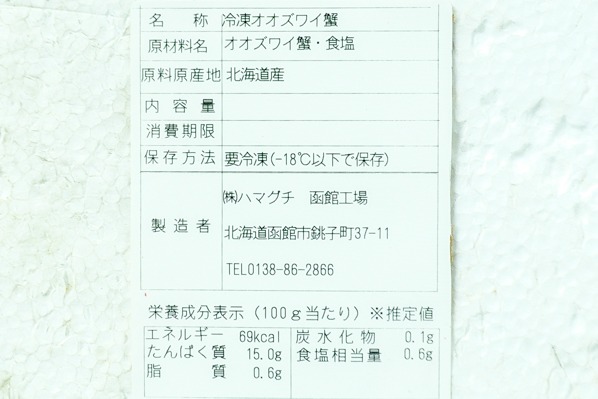 名称 冷凍オオズワイ蟹
原材料名 オオズワイ蟹・食塩
原料原産地 北海道産
内容量
消費期限
保存方法 要冷凍(-18℃以下で保存)
製造者 ㈱ハマグチ 函館工場
北海道函館市銚子町37-11
TEL0138-86-2866
栄養成分表示(100g当たり)※推定値
エネルギー 69kcal 炭水化物 0.1g
たんぱく質 15.0g 食塩相当量 0.6g
脂質 0.6g